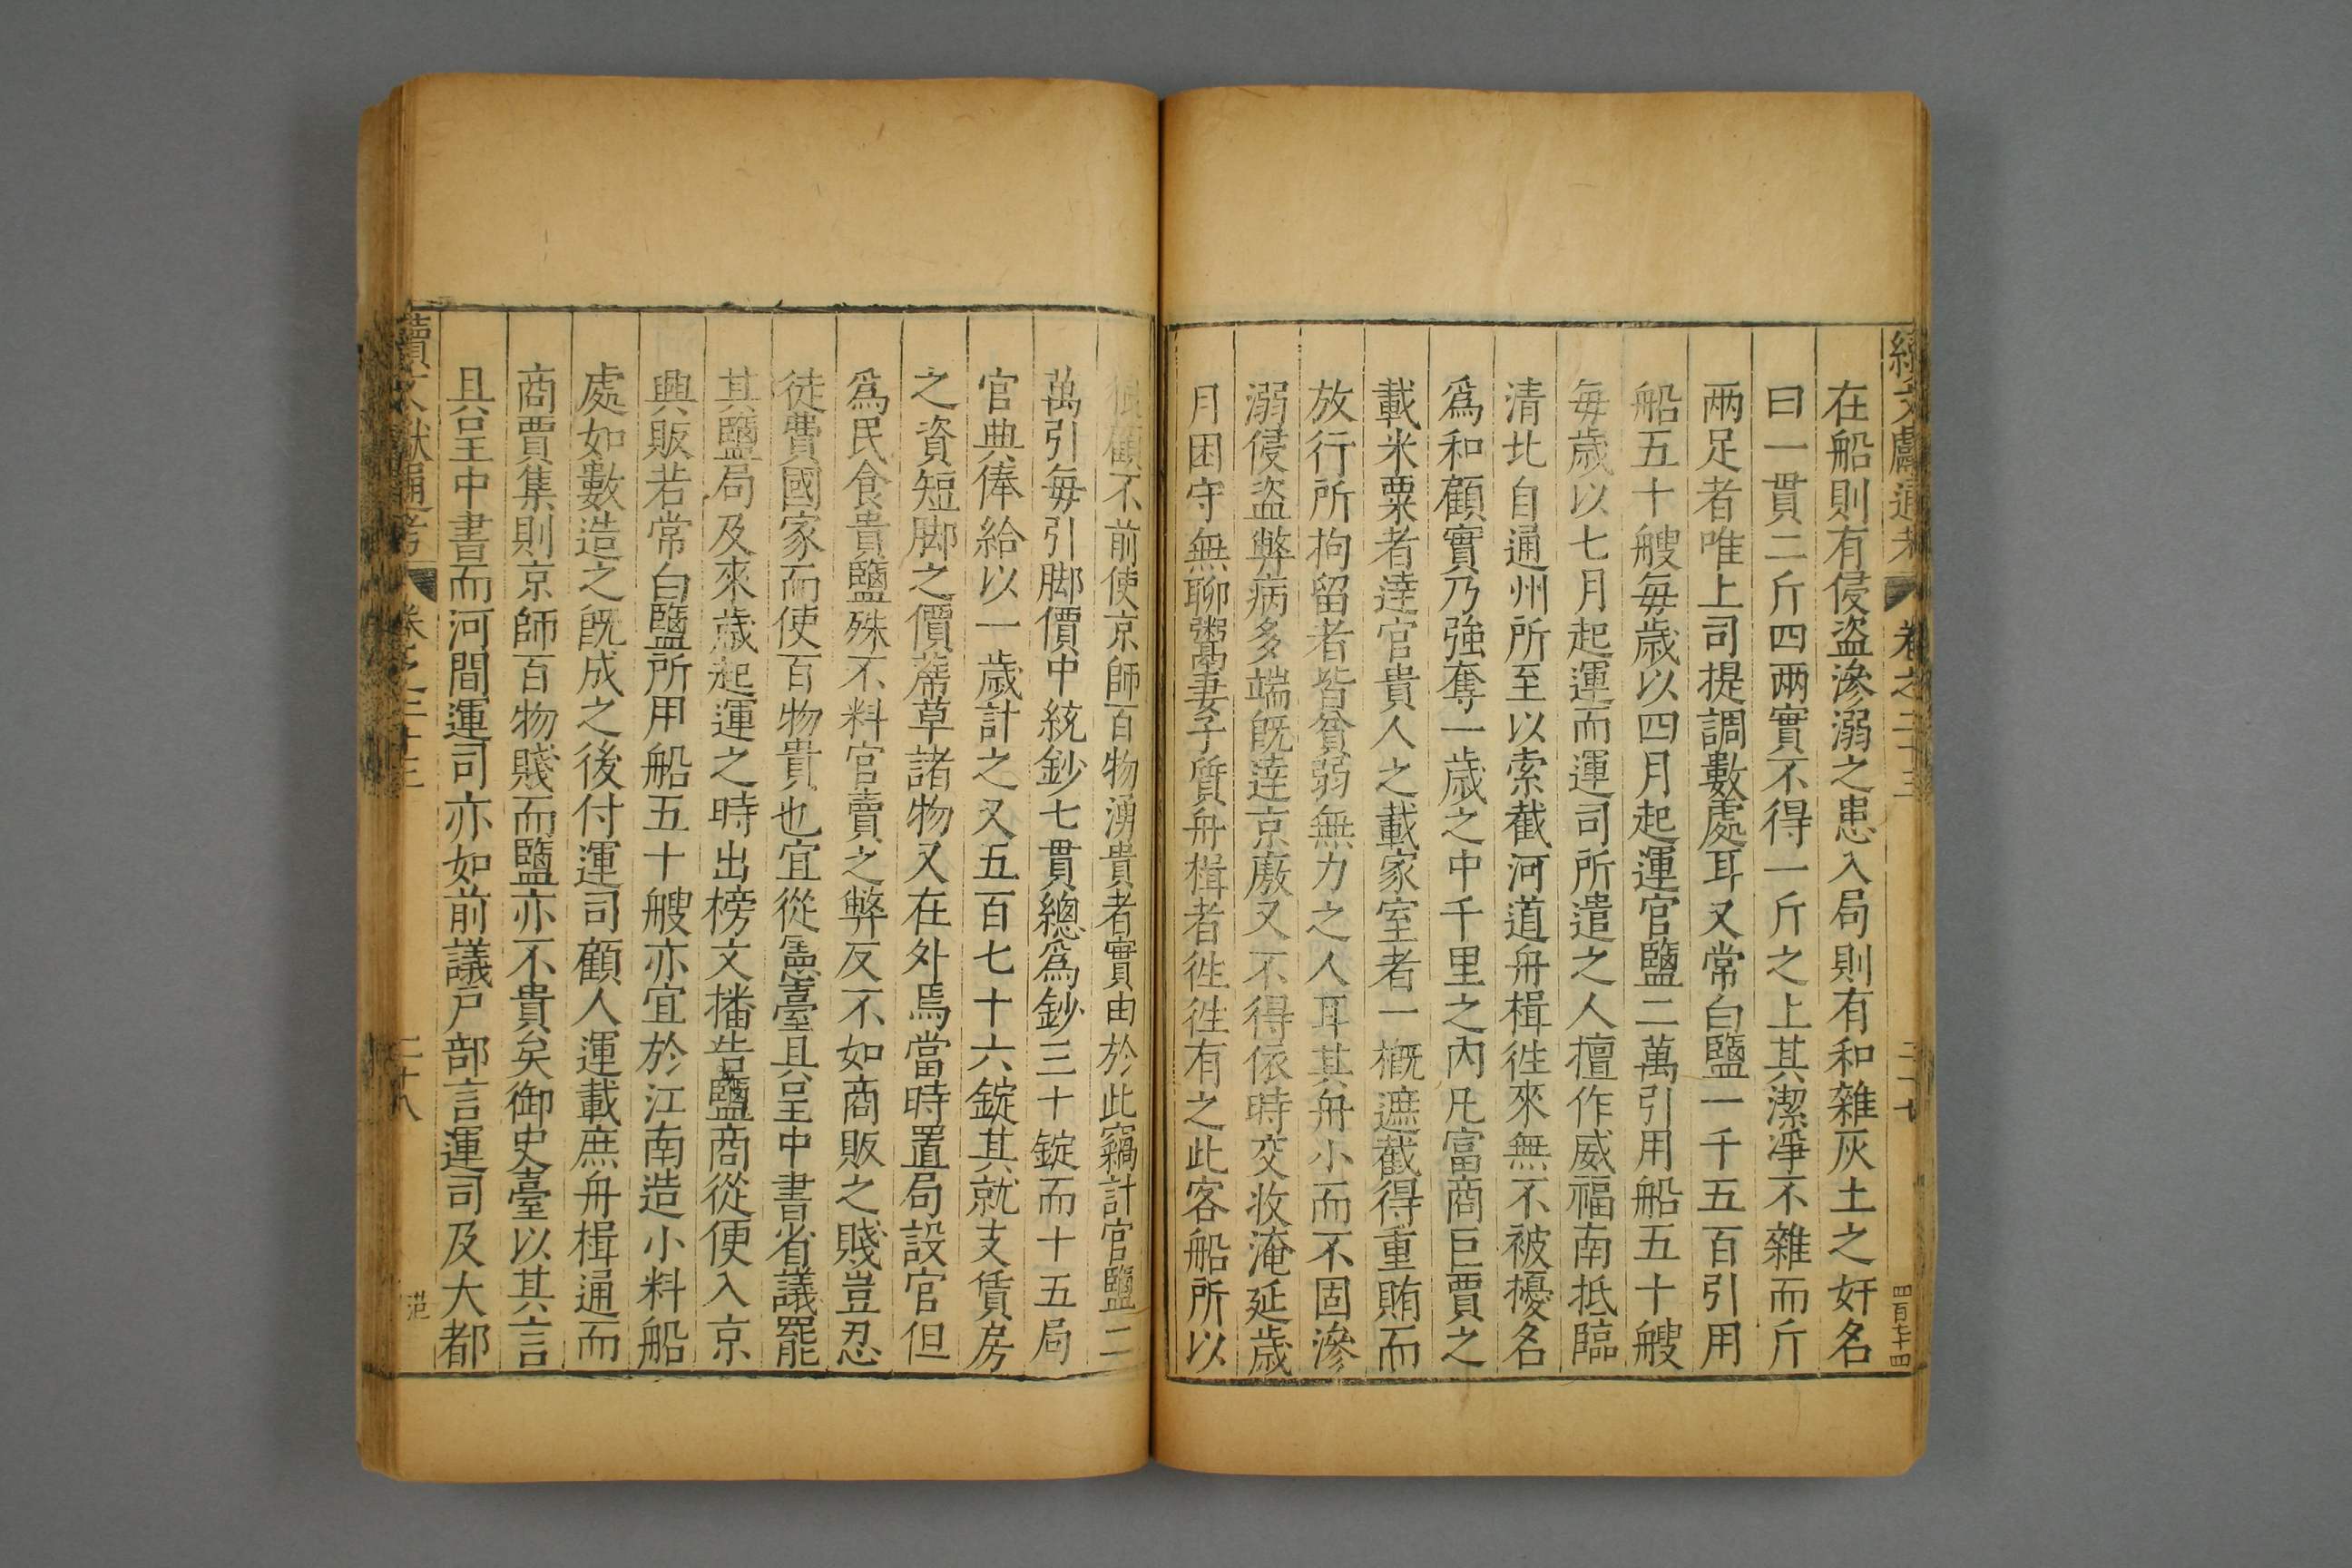 續文獻通考 卷之二十三 二十七 四百七十四
在船則有侵盜滲溺之患入局則有和雜灰土之奸名
曰一貫二斤四兩實不得一斤之上其潔凈不雜而斤
兩足者唯上司提調數處耳又常白鹽一千五百引用
船五十艘每歲以四月起運官鹽二萬引用船五十艘
每歲以七月起運而運司所遣之人擅作威福南抵臨
清北自通州所至以索截河道舟楫徃來無不被擾名
爲和顧實乃強奪一歲之中千里之內凡富商巨賈之
載米粟者達官貴人之載家室者一槪遮截得重賄而
放行所拘留者皆貧弱無力之人耳其舟小而不固滲
溺侵盜弊病多端旣達京廒又不得依時交收淹延歲
月困守無聊鬻妻子質舟楫者徃徃有之此客船所以
狼顧不前使京師百物湧貴者實由於此竊計官鹽二
萬引每引脚價中統鈔七貫總爲鈔三千錠而十五局
官典俸給以一歲計之又五百七十六錠其就支賃房
之資短脚之價蓆草諸物又在外焉當時置局設官但
爲民食貴鹽殊不料官賣之弊反不如商販之賤豈忍
徒費國家而使百物貴也宜從憲臺具呈中書省議罷
其鹽局及來歲起運之時出榜文播告鹽商從便入京
興販若常白鹽所用船五十艘亦宜於江南造小料船
處如數造之旣成之後付運司顧人運載庶舟楫通而
商賈集則京師百物賤而鹽亦不貴矣御史臺以其言
具呈中書而河間運司亦如前議戶部言運司及大都
續文獻通考 卷之二十三 二十八 范